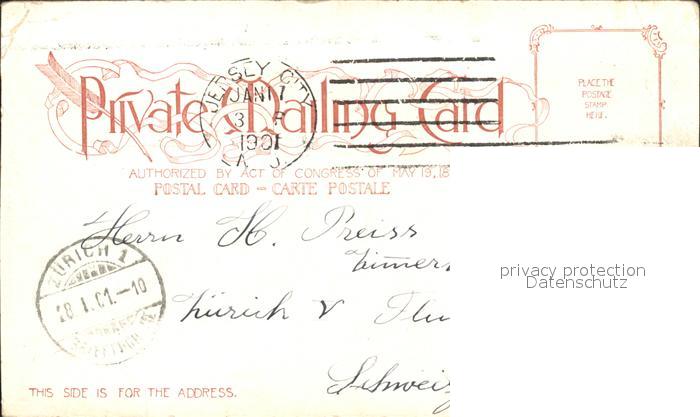 Private Mailing Card
JERSEY CITY
JAN 17
3 P
1901
N.J.
PLACE THE
POSTAGE
STAMP
HERE.
AUTHORIZED BY ACT OF CONGRESS OF MAY 19, 18
POSTAL CARD – CARTE POSTALE
Herrn H. Preiss
ZÜRICH 1
28.I.01.–10
Zürich V Flu
Schweiz
privacy protection
Datenschutz
THIS SIDE IS FOR THE ADDRESS.